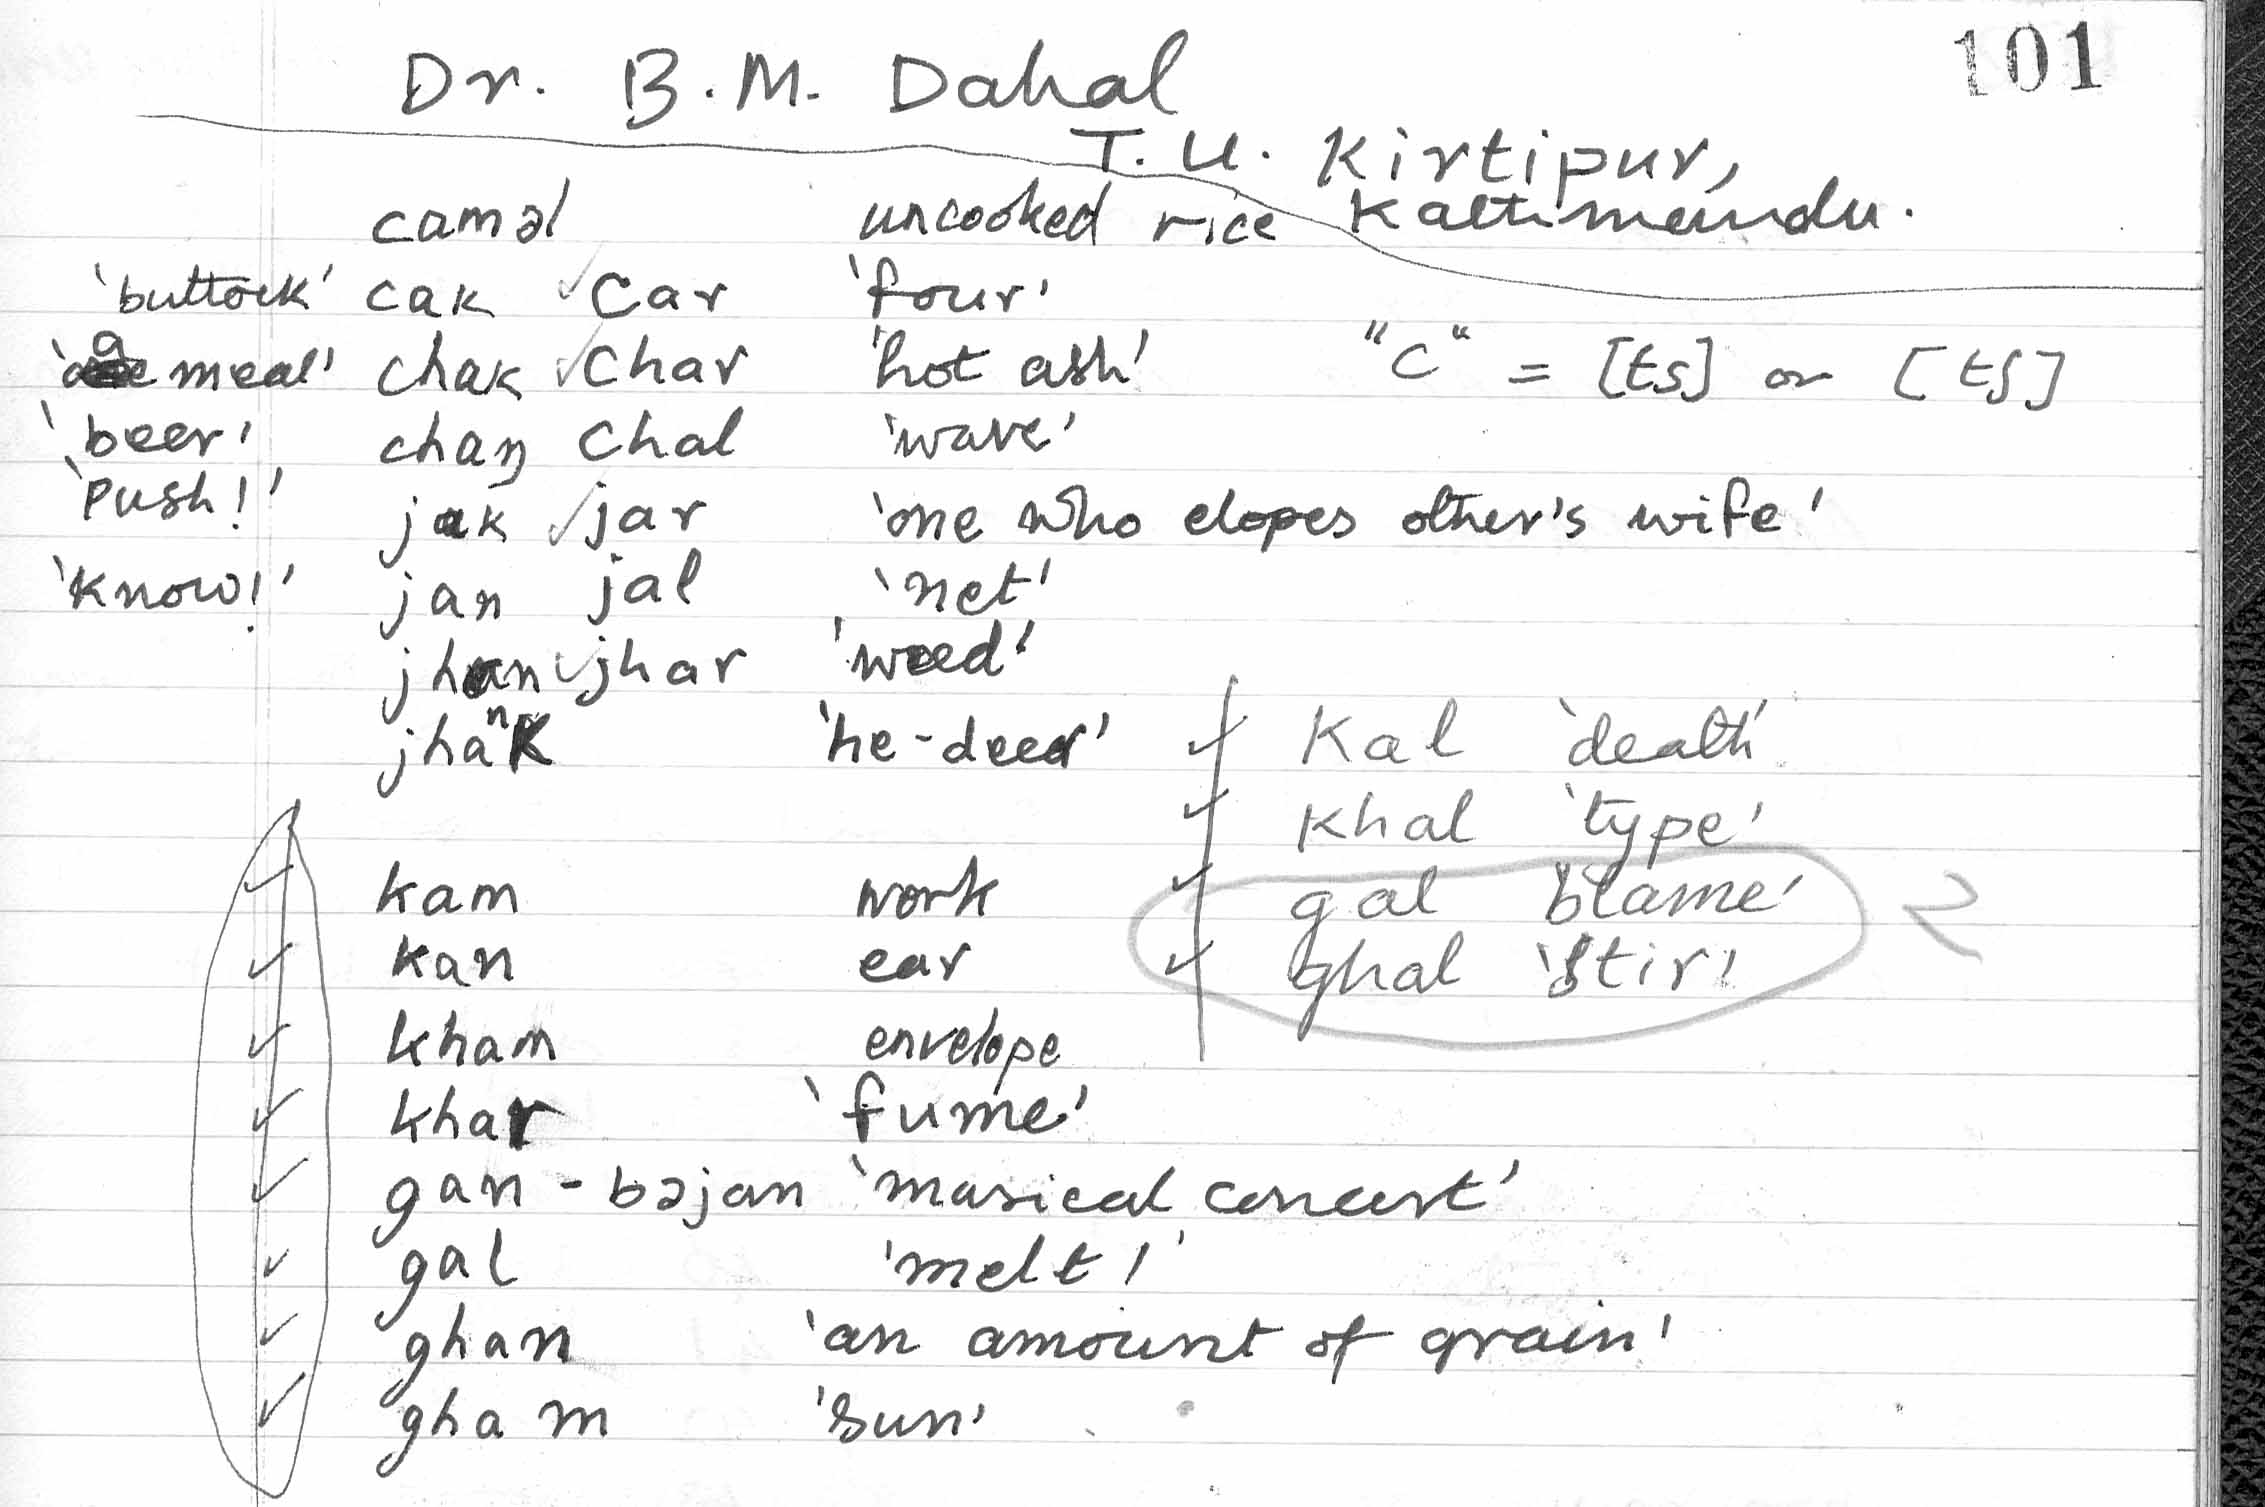 101
Dr. B. M. Dahal
T. U. Kirtipur,
Kathmandu.
caməl uncooked rice
'buttock' cak ✓ car 'four'
'a meal' chak ✓ char 'hot ash' "c" = [ts] or [tʃ]
'beer' chaŋ chal 'wave'
'Push!' jak ✓ jar 'one who elopes other's wife'
'Know!' jan jal 'net'
jhan ✓ jhar 'weed'
jhaⁿk 'he-deer' ✓ kal 'death'
✓ khal 'type'
✓ kam work ✓ gal 'blame'
✓ kan ear ✓ ghal 'stir'
✓ kham envelope
✓ khar 'fume'
✓ gan - bəjan 'musical concert'
✓ gal 'melt!'
✓ ghan 'an amount of grain'
✓ gham 'sun'